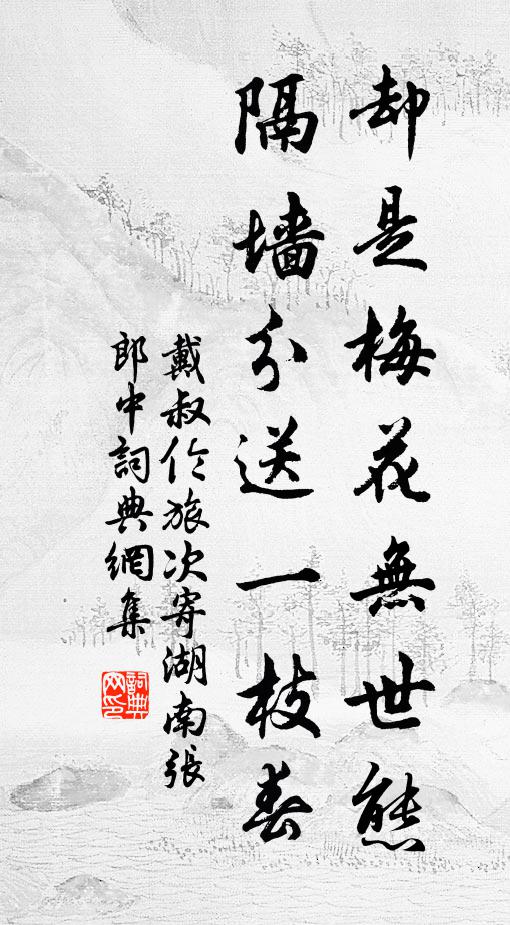 却是梅花無世態
隔墻分送一枝春
戴叔伦旅次寄湖南張
郎中詞典網集
詞典网印